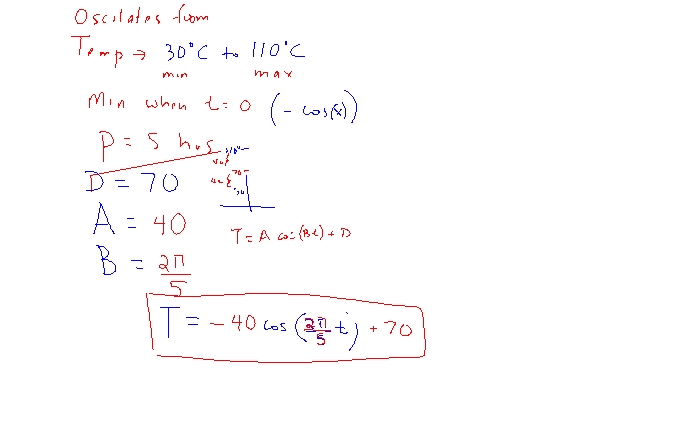 Oscilates from
Temp → 30°C to 110°C
min max
Min when t = 0 (-cos(x))
P = 5 hrs
D = 70
A = 40
T = A cos(Bt) + D
B = 2π/5
T = -40 cos(2π/5 t) + 70